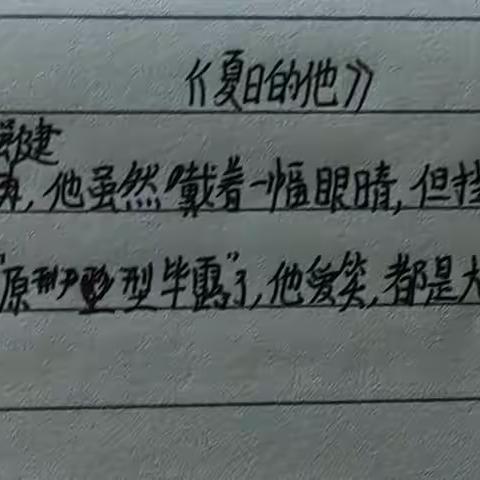 《夏日的他》
健
,他虽然戴着一幅眼睛,但挡
“原型毕露”了,他爱笑,都是大